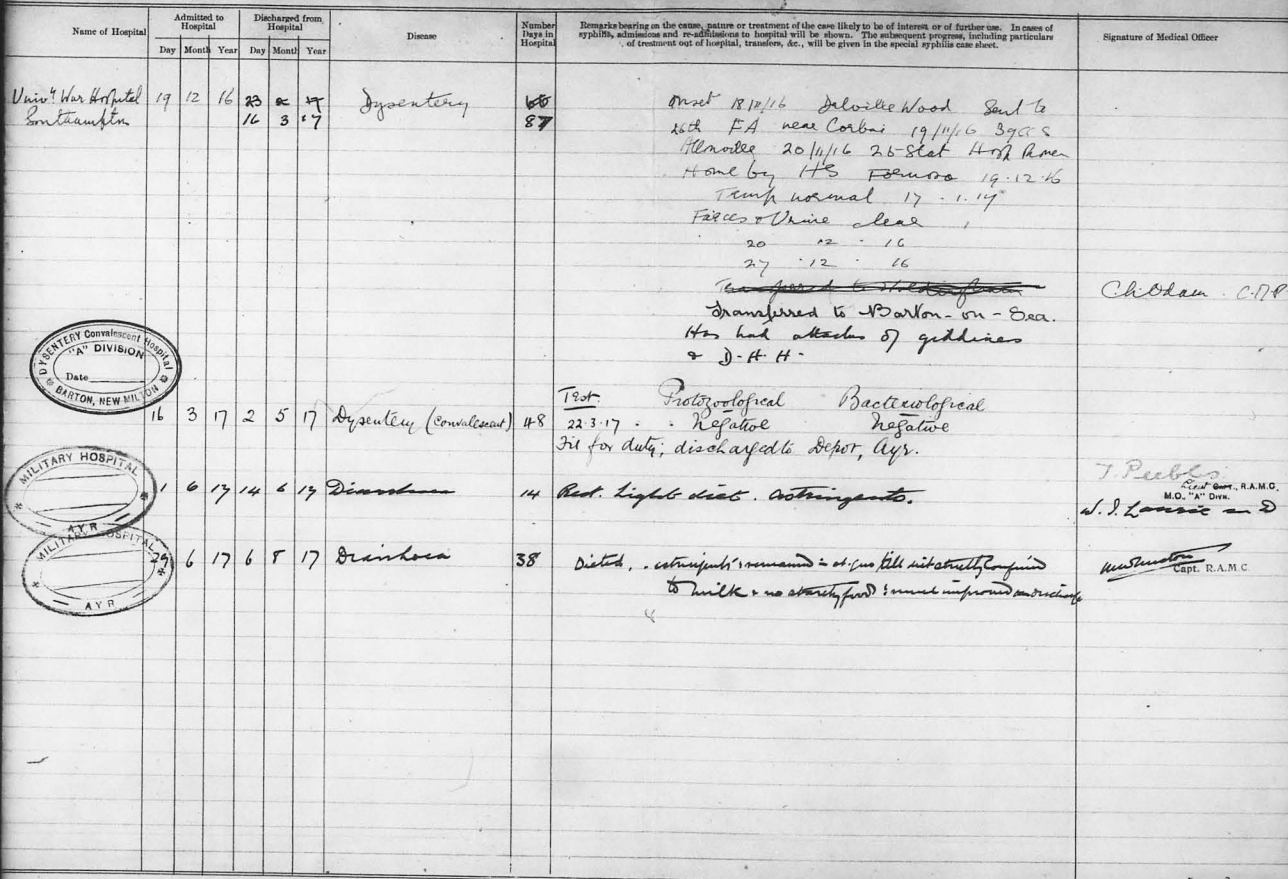 Name of Hospital
Admitted to Hospital
Day Month Year
Discharged from Hospital
Day Month Year
Disease
Number Days in Hospital
Remarks bearing on the cause, nature or treatment of the case likely to be of interest or of further use. In cases of
syphilis, admissions and re-admissions to hospital will be shown. The subsequent progress, including particulars
of treatment out of hospital, transfers, &c., will be given in the special syphilis case sheet.
Signature of Medical Officer
War Hospital 19 12 16 23 2 17 Dysentery Onset Delville Wood Sent to
16 3 17 87 26th FA near Corbie 19/11/16 39 CCS
20/11/16 25 Stat Hosp
Home by HS 19.12.16
Temp normal 17.1.17
Faeces & Urine clear
20 12 16
27 12 16
Transferred to
Transferred to Barton-on-Sea.
Has had attacks of giddiness
& D.A.H.
DYSENTERY Convalescent Hospital
"A" DIVISION
Date
BARTON, NEW MILTON
16 3 17 2 5 17 Dysentery (convalescent) 48 Test: Protozoological Bacteriological
22.3.17 Negative Negative
Fit for duty; discharged to Depot, Ayr.
T. Peebles
Lieut Capt., R.A.M.C.
M.O., "A" Divn.
MILITARY HOSPITAL
AYR
1 6 17 14 6 17 Diarrhoea 14 Rest. Light diet. Astringents.
MILITARY HOSPITAL
AYR
29 6 17 6 8 17 Diarrhoea 38 Dieted, astringents till strictly confined
Capt. R.A.M.C.
to milk & no starchy food improved on discharge